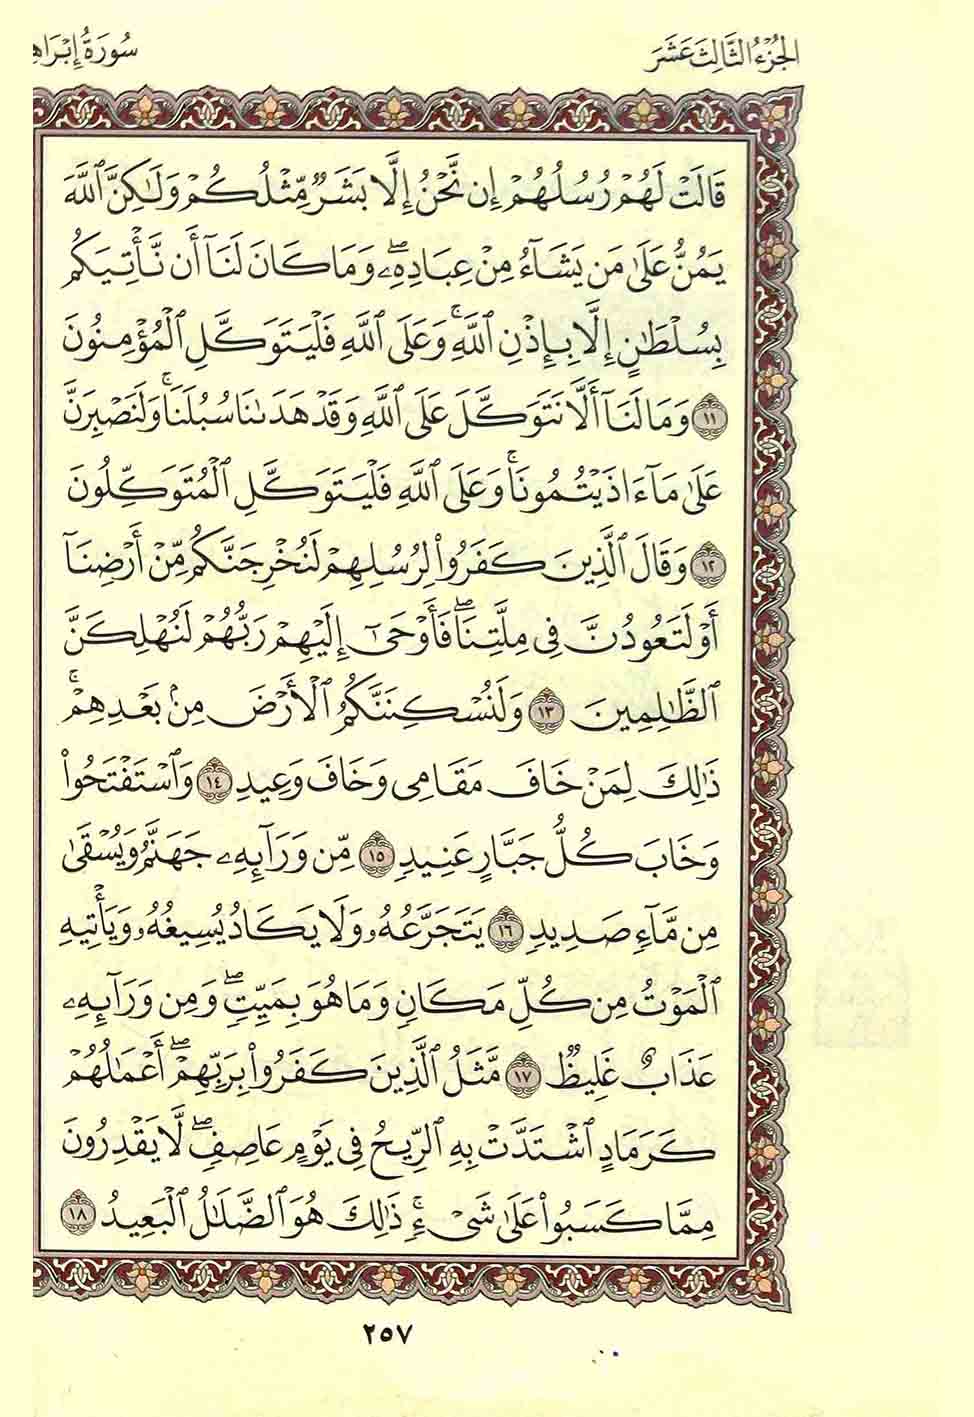 الجُزْءُ الثَّالِثَ عَشَرَ
سُورَةُ إِبْرَاهِ
قَالَتْ لَهُمْ رُسُلُهُمْ إِن نَّحْنُ إِلَّا بَشَرٌ مِّثْلُكُمْ وَلَـٰكِنَّ ٱللَّهَ
يَمُنُّ عَلَىٰ مَن يَشَآءُ مِنْ عِبَادِهِۦۖ وَمَا كَانَ لَنَآ أَن نَّأْتِيَكُم
بِسُلْطَـٰنٍ إِلَّا بِإِذْنِ ٱللَّهِۚ وَعَلَى ٱللَّهِ فَلْيَتَوَكَّلِ ٱلْمُؤْمِنُونَ
١١ وَمَا لَنَآ أَلَّا نَتَوَكَّلَ عَلَى ٱللَّهِ وَقَدْ هَدَىٰنَا سُبُلَنَاۚ وَلَنَصْبِرَنَّ
عَلَىٰ مَآ ءَاذَيْتُمُونَاۚ وَعَلَى ٱللَّهِ فَلْيَتَوَكَّلِ ٱلْمُتَوَكِّلُونَ
١٢ وَقَالَ ٱلَّذِينَ كَفَرُوا۟ لِرُسُلِهِمْ لَنُخْرِجَنَّكُم مِّنْ أَرْضِنَآ
أَوْ لَتَعُودُنَّ فِى مِلَّتِنَاۖ فَأَوْحَىٰٓ إِلَيْهِمْ رَبُّهُمْ لَنُهْلِكَنَّ
ٱلظَّـٰلِمِينَ ١٣ وَلَنُسْكِنَنَّكُمُ ٱلْأَرْضَ مِنۢ بَعْدِهِمْۚ
ذَٰلِكَ لِمَنْ خَافَ مَقَامِى وَخَافَ وَعِيدِ ١٤ وَٱسْتَفْتَحُوا۟
وَخَابَ كُلُّ جَبَّارٍ عَنِيدٍ ١٥ مِّن وَرَآئِهِۦ جَهَنَّمُ وَيُسْقَىٰ
مِن مَّآءٍ صَدِيدٍ ١٦ يَتَجَرَّعُهُۥ وَلَا يَكَادُ يُسِيغُهُۥ وَيَأْتِيهِ
ٱلْمَوْتُ مِن كُلِّ مَكَانٍ وَمَا هُوَ بِمَيِّتٍۖ وَمِن وَرَآئِهِۦ
عَذَابٌ غَلِيظٌ ١٧ مَّثَلُ ٱلَّذِينَ كَفَرُوا۟ بِرَبِّهِمْۖ أَعْمَـٰلُهُمْ
كَرَمَادٍ ٱشْتَدَّتْ بِهِ ٱلرِّيحُ فِى يَوْمٍ عَاصِفٍۖ لَّا يَقْدِرُونَ
مِمَّا كَسَبُوا۟ عَلَىٰ شَىْءٍۚ ذَٰلِكَ هُوَ ٱلضَّلَـٰلُ ٱلْبَعِيدُ ١٨
٢٥٧